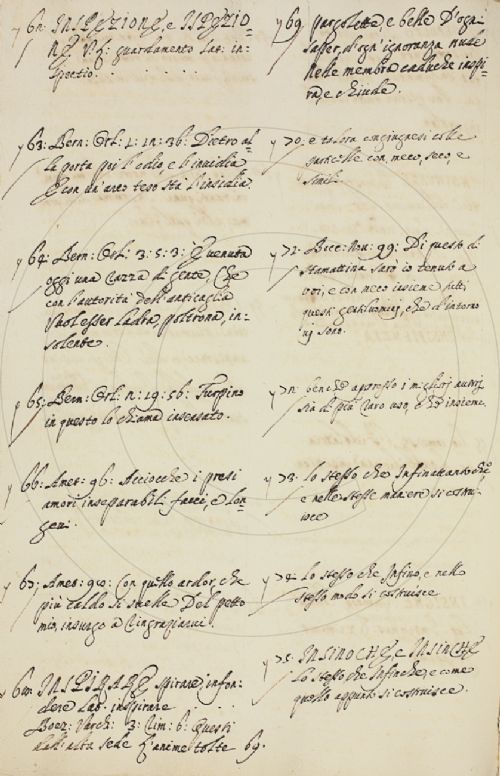 62. INSPEZIONE, e ISPEZIO-
NE. V. g: guardamento Lat: in-
spectio.
63. Bern: Orl: 1: 12: 36: Dietro al-
la porta poi l'odio, e l'invidia
E con un'arco teso sta l'insidia.
64. Bern: Orl: 3: 5: 3: E' venuta
oggi una razza di gente, Che
con l'autorità dell'anticaglia
Vuol esser ladra, poltrona, in-
solente.
65. Bern: Orl: 2: 19: 56: Turpino
in questo lo chiama insensato.
66. Amet: 96: Acciocchè i presi
amori inseparabili facci, e lon-
gevi.
67. Amet: 90: Con quello ardor, che
più caldo si svelle Del petto
mio, insurgo a ringraziarvi
68. INSPIRARE, Spirare, infon-
dere Lat: inspirare.
Boez: Varch: 3: Rim: 6: Questi
dall'alta sede l'anime tolte 69.
69. pargolette, e belle D'ogni
saper, d'ogn'ignoranza nude
Nelle membra caduche inspi-
ra, e chiude.
70. e talora congiugnesi colle
particelle con, meco, seco, e
simili.
71. Bocc: Nov: 99: Di questi di
stamattina sarò io tenuto a
voi, e con meco insieme tutti
questi gentiluomini, che d'intorno
vi sono.
72. benchè appresso i migliori autori
sia di più raro uso, che insieme.
73. Lo stesso che Infinattantochè,
e nelle stesse maniere si costrui-
sce
74. Lo stesso che Infino, e nello
stesso modo si costruisce
75. INSINOCHE, e INSINCHE
Lo stesso che Infinchè, e come
quello appunto si costruisce.